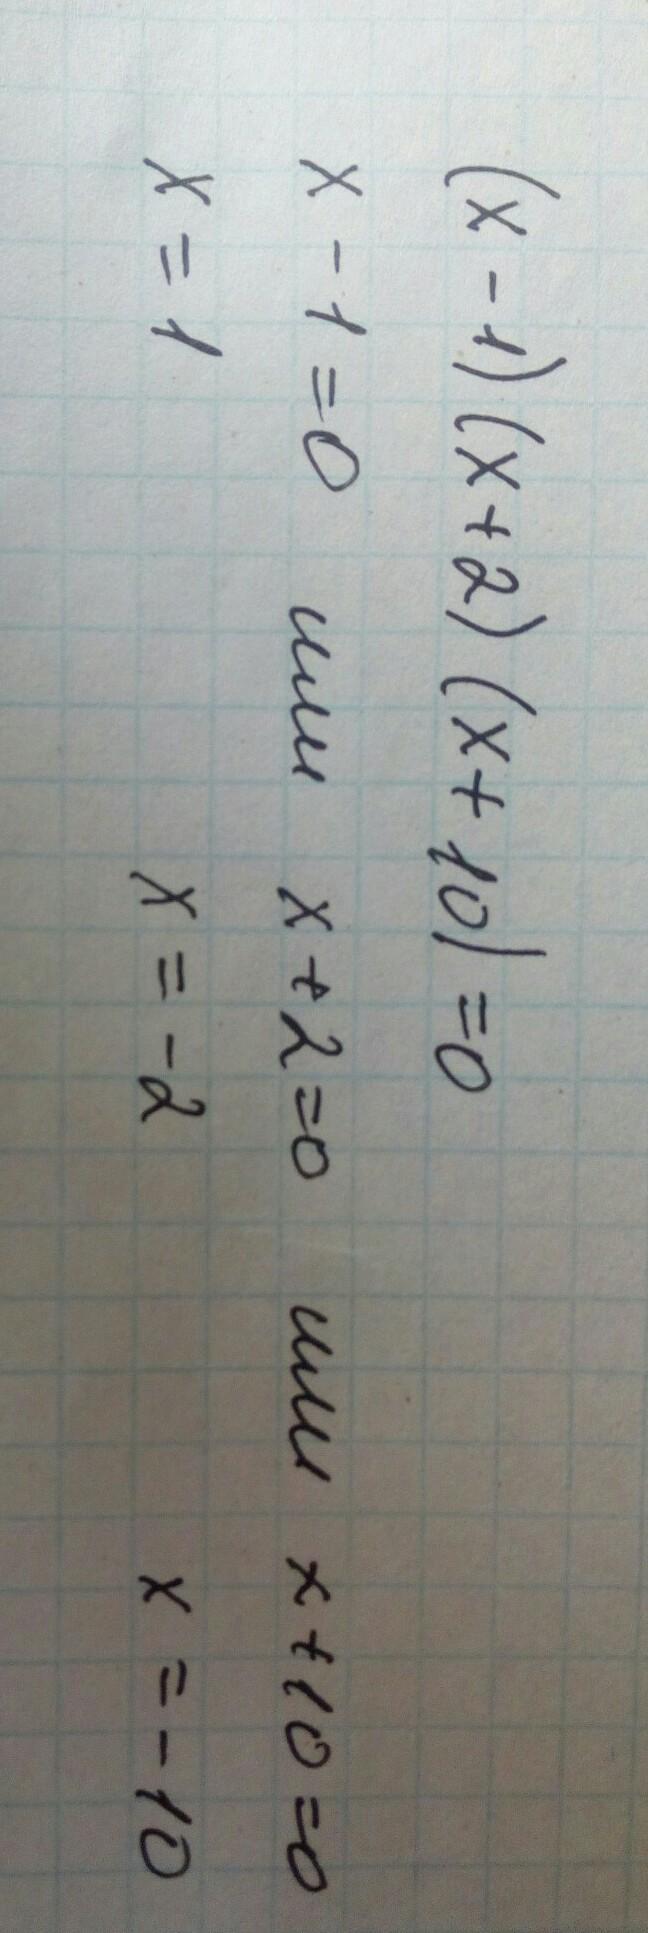 (x - 1) (x + 2) (x + 10) = 0
x - 1 = 0 или x + 2 = 0 или x + 10 = 0
x = 1 x = -2 x = -10